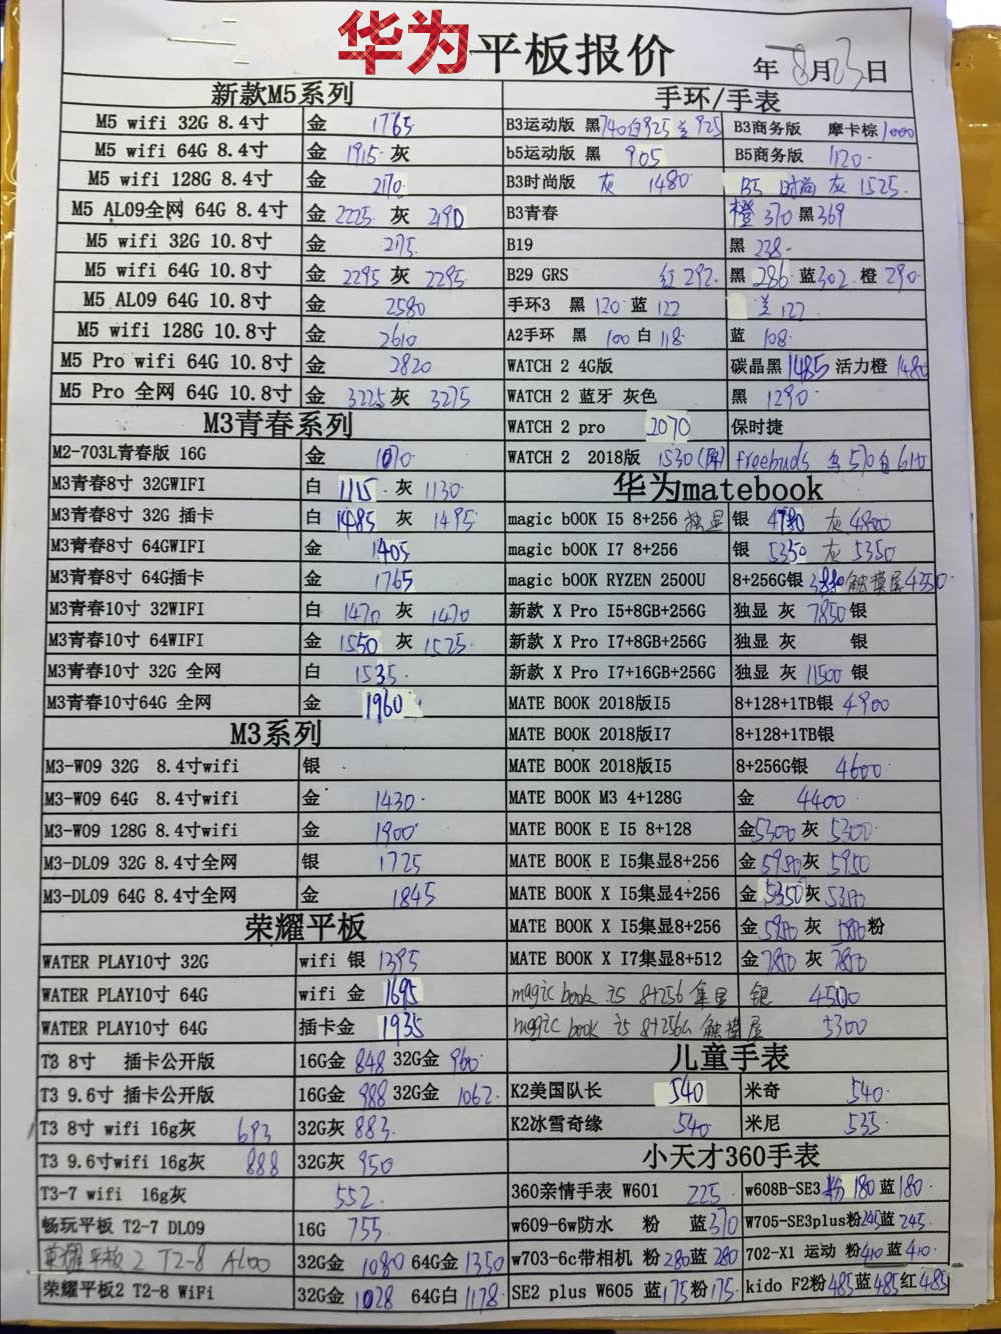 华为平板报价 年8月23日
新款M5系列
M5 wifi 32G 8.4寸 金 1765
M5 wifi 64G 8.4寸 金 1915 灰
M5 wifi 128G 8.4寸 金 2170
M5 AL09全网 64G 8.4寸 金 2225 灰 2190
M5 wifi 32G 10.8寸 金
M5 wifi 64G 10.8寸 金 2295 灰 2295
M5 AL09 64G 10.8寸 金 2580
M5 wifi 128G 10.8寸 金 2610
M5 Pro wifi 64G 10.8寸 金 2820
M5 Pro 全网 64G 10.8寸 金 3225 灰 3275
M3青春系列
M2-703L青春版 16G 金 1070
M3青春8寸 32GWIFI 白 1115 灰 1130
M3青春8寸 32G 插卡 白 1485 灰 1495
M3青春8寸 64GWIFI 金 1405
M3青春8寸 64G插卡 金 1765
M3青春10寸 32WIFI 白 1470 灰 1470
M3青春10寸 64WIFI 金 1550 灰 1525
M3青春10寸 32G 全网 白 1535
M3青春10寸64G 全网 金 1960
M3系列
M3-W09 32G 8.4寸wifi 银
M3-W09 64G 8.4寸wifi 金 1430
M3-W09 128G 8.4寸wifi 金 1900
M3-DL09 32G 8.4寸全网 银 1725
M3-DL09 64G 8.4寸全网 金 1845
荣耀平板
WATER PLAY10寸 32G wifi 银 1395
WATER PLAY10寸 64G wifi 金 1695
WATER PLAY10寸 64G 插卡金 1935
T3 8寸 插卡公开版 16G金 848 32G金 960
T3 9.6寸 插卡公开版 16G金 988 32G金 1062
T3 8寸 wifi 16g灰 693 32G灰 883
T3 9.6寸wifi 16g灰 888 32G灰 950
T3-7 wifi 16g灰 552
畅玩平板 T2-7 DL09 16G 755
荣耀平板2 T2-8 AL00 32G金 1080 64G金 1350
荣耀平板2 T2-8 WiFi 32G金 1028 64G白 1178
手环/手表
B3运动版 黑740白925 兰925 B3商务版 摩卡棕1000
b5运动版 黑 905 B5商务版 1120
B3时尚版 灰 1480 B5 时尚 灰 1525
B3青春 橙 370 黑369
B19 黑 228
B29 GRS 红 292 黑 286 蓝302 橙 290
手环3 黑 120 蓝 122 兰 122
A2手环 黑 100 白 118 蓝 108
WATCH 2 4G版 碳晶黑 1485 活力橙 1480
WATCH 2 蓝牙 灰色 黑 1290
WATCH 2 pro 2070 保时捷
WATCH 2 2018版 1530 freebuds 570 白 610
华为matebook
magic bOOK I5 8+256 独显 银 4780 灰 4800
magic bOOK I7 8+256 银 5350 灰 5350
magic bOOK RYZEN 2500U 8+256G银 触摸屏4350
新款 X Pro I5+8GB+256G 独显 灰 7850 银
新款 X Pro I7+8GB+256G 独显 灰 银
新款 X Pro I7+16GB+256G 独显 灰 11500 银
MATE BOOK 2018版I5 8+128+1TB银 4900
MATE BOOK 2018版I7 8+128+1TB银
MATE BOOK 2018版I5 8+256G银 4600
MATE BOOK M3 4+128G 金 4400
MATE BOOK E I5 8+128 金5300 灰 5300
MATE BOOK E I5集显8+256 金5950灰 5950
MATE BOOK X I5集显4+256 金5350灰
MATE BOOK X I5集显8+256 金 灰 粉
MATE BOOK X I7集显8+512 金7850 灰 7850
magic book i5 8+256 集显 银 4500
magic book i5 8+256G 触摸屏 5300
儿童手表
K2美国队长 540 米奇 540
K2冰雪奇缘 540 米尼 535
小天才360手表
360亲情手表 W601 225 w608B-SE3 粉 180 蓝180
w609-6w防水 粉 蓝370 W705-SE3plus粉245蓝245
w703-6c带相机 粉 280蓝 280 702-X1 运动 粉410 蓝410
SE2 plus W605 蓝175粉175 kido F2粉485蓝485红485